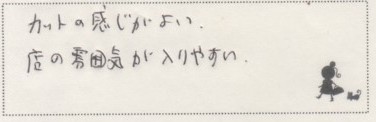 カットの感じがよい.
店の雰囲気が入りやすい.